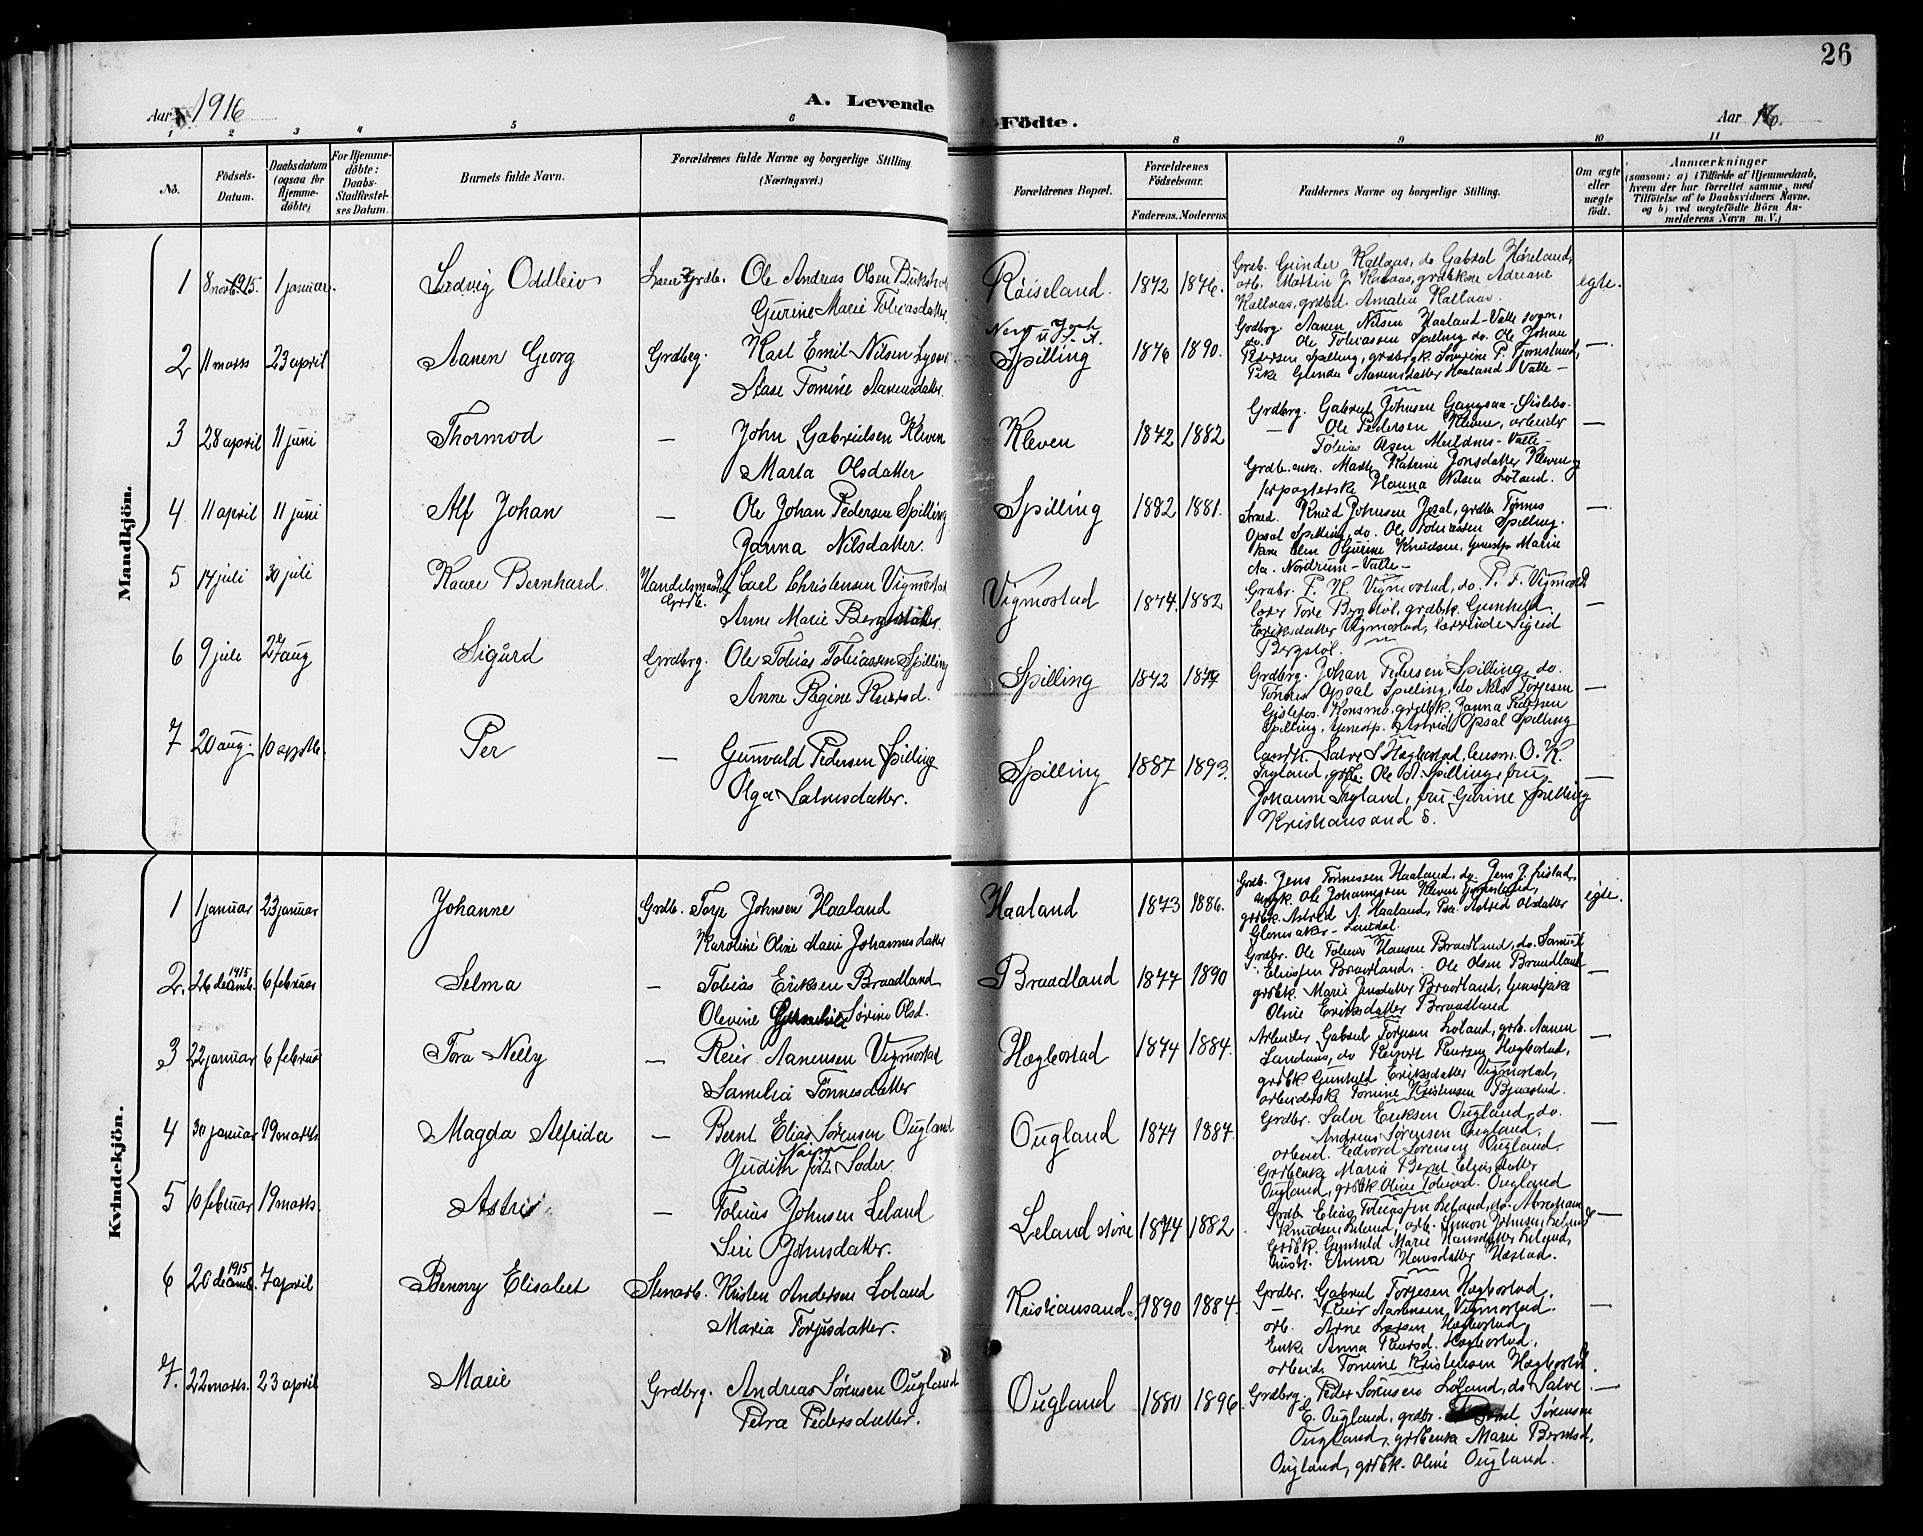 26
Aar 1916
A. Levende
Födte.
Aar 16.
1 2 3 4 5 6 8 9 10 11
No.
Födsels-
Datum.
Daabsdatum
(ogsaa for
Hjemme-
döbte)
For Hjemme-
döbte:
Daabs-
Stadfæstel-
ses Datum.
Barnets fulde Navn.
Forældrenes fulde Navne og borgerlige Stilling
(Næringsvei.)
Forældrenes Bopæl.
Forældrenes
Födselsaar.
Faderens. Moderens
Faddernes Navne og borgerlige Stilling.
Om ægte
eller
uægte
födt.
Anmærkninger
(saasom: a) i Tilfælde af Hjemmedaab,
hvem der har forrettet samme, med
Tilföielse af to Daabsvidners Navne.
og b) ved uægtefödte Börn An-
melderens Navn m. V.)
Mandkjön.
1 8 novb. 1915. 1 januar. Ludvig Oddleiv Lærer, Grdb. Ole Andreas Olsen
Gurine Marie Tobiasdatter
Röiseland. 1872 1876. egte.
Grdb. Gunder Kallaas, do Gabriel Höieland,
arb. Martin J. Kallaas, grdbkone Adriane
Kallaas, grdbd. Amalie Kallaas.
2 11 marts 23 april Aanen Georg Grdbrg. Karl Emil Nilsen
Aase Tomine Aanensdatter
New York
Spilling 1876 1890. —
Grdbrg. Aanen Nilsen Haaland - Valle sogn,
do. Ole Tobiassen Spilling do. Ole Johan
Pedersen Spilling, grdbrgk. P.
Pike Aanensdatter Haaland Valle —
3 28 april 11 juni Thormod — John Gabrielsen Kleven
Marta Olsdatter
Kleven 1872 1882 —
Grdbrg. Gabriel Johnsen
— Ole Pedersen Kleven, arbeider
Tobias Olsen - Valle -
Grdb. enke. Katrine Jonsdatter Kleven
forpagterske Hanna Nilsen Löland.
4 11 april 11 juni Alf Johan — Ole Johan Pedersen Spilling
Janna Nilsdatter.
Spilling 1882 1881. —
Smed. Knud Johnsen grdbr Tönnes
Opsal Spilling, do. Ole Tobiassen Spilling.
Gurine Knudsen, Marie
Aa. Nordrum - Valle -
5 14 juli 30 juli Kaare Bernhard. Handelsmand
Grdb. Carl Christensen Vigmostad
Anne Marie
Vigmostad 1874. 1882 —
Grdbr. P. H. Vigmostad, do. P. F. Vigmostad
lærer Tore Bergstöl, grdbk. Gunhild
Eriksdatter Vigmostad, lærerinde Sigrid
Bergstöl.
6 9 juli 27 aug Sigurd Grdbrg. Ole Tobias Tobiassen Spilling
Anne Regine
Spilling 1872 —
Grdbrg. Johan Pedersen Spilling, do.
Tönnes Opsal Spilling, do Nils Torjesen
Gislefos. Konsmo, grdbk. Janna Pedersen
Spilling, Astrid Opsal Spilling
7 20 aug. 10 Per — Gunvald Pedersen Spilling
Olga Salvesdatter.
Spilling 1887 1893. —
Salve S Hægbostad, lensm. O. K.
Trygland, grdb. Ole A. Spilling, fru
Johanne Trygland, fru Gurine Spilling
Kristiansand S.
Kvindekjön.
1 1 januar 23 januar Johanne Grdb. Torje Johnsen Haaland
Karoline Oline Marie Johannesdatter
Haaland 1873 1886. egte.
Grdb. Jens Tönnessen Haaland, do Jens J.
Ole Johannessen Kleven
grdbk. Astrid A. Haaland, Pike Astrid Olsdatter
2. 26 decemb. 1915 6 februar Selma — Tobias Eriksen Braadland
Olevine Sörine Olsd.
Braadland 1877 1890 —
Grdbr. Ole Tobias Hansen Braadland, do. Samuel
Eliassen Braadland. Ole Olsen Braadland
grdbk. Marie Jensdatter Braadland,
Oline Eriksdatter Braadland
3 22 januar 6 februar Tora Nelly — Reier Aanensen Vigmostad
Samelia Tönnesdatter
Hægbostad 1874 1884. —
Arbeider Gabriel Torjesen Löland, grb. Aanen
Landaas, do Hægbostad,
grdbk. Gunhild Eriksdatter Vigmostad,
arbeiderske Tomine Kristensen
4 30 januar 19 marts Magda Alfrida — Bernt Elias Sörensen Ougland
Judith föd
Ougland 1877 1887. —
Grdbr. Salve Eriksen Ougland, do.
Andreas Sörensen Ougland,
arbeid. Edvard Sörensen Ougland
Grdbenke Maria Bernt Eliasdatter
Ougland, grdbk Oline Ougland
5 10 februar 19 marts. Astrid — Tobias Johnsen Leland
Siri Johnsdatter.
Leland 1874 1882. —
Grdbr. Elias Tobiassen Leland, do. Abraham
Knudsen Leland, arb. Simon Johnsen Leland
Grdbk. Gunhild Marie Hansdatter Leland,
hush. Anna Hansdatter
6 26 decemb. 1915 7 april Benny Elisabet Stenarb. Kristen Andersen Loland
Maria Torjusdatter.
Kristiansand S. 1890 1884. —
Grdbr. Gabriel Torjesen Hægbostad.
— Reier Aanensen Vigmostad.
arb. Arne Larsen Hægbostad
Enke Anna Hægbostad.
arbeid. Tomine Kristensen Hægbostad.
7. 22 marts. 23 april Marie Grdbrg. Andreas Sörensen Ougland
Petra Pedersdatter.
Ougland 1880 1896. —
Grdbrg. Peder Sörensen Löland, do Salve
E. Ougland, grdbr. Sörensen
Ougland, grdbenke Marie Berntsd.
Ougland, grdbk. Oline Ougland.